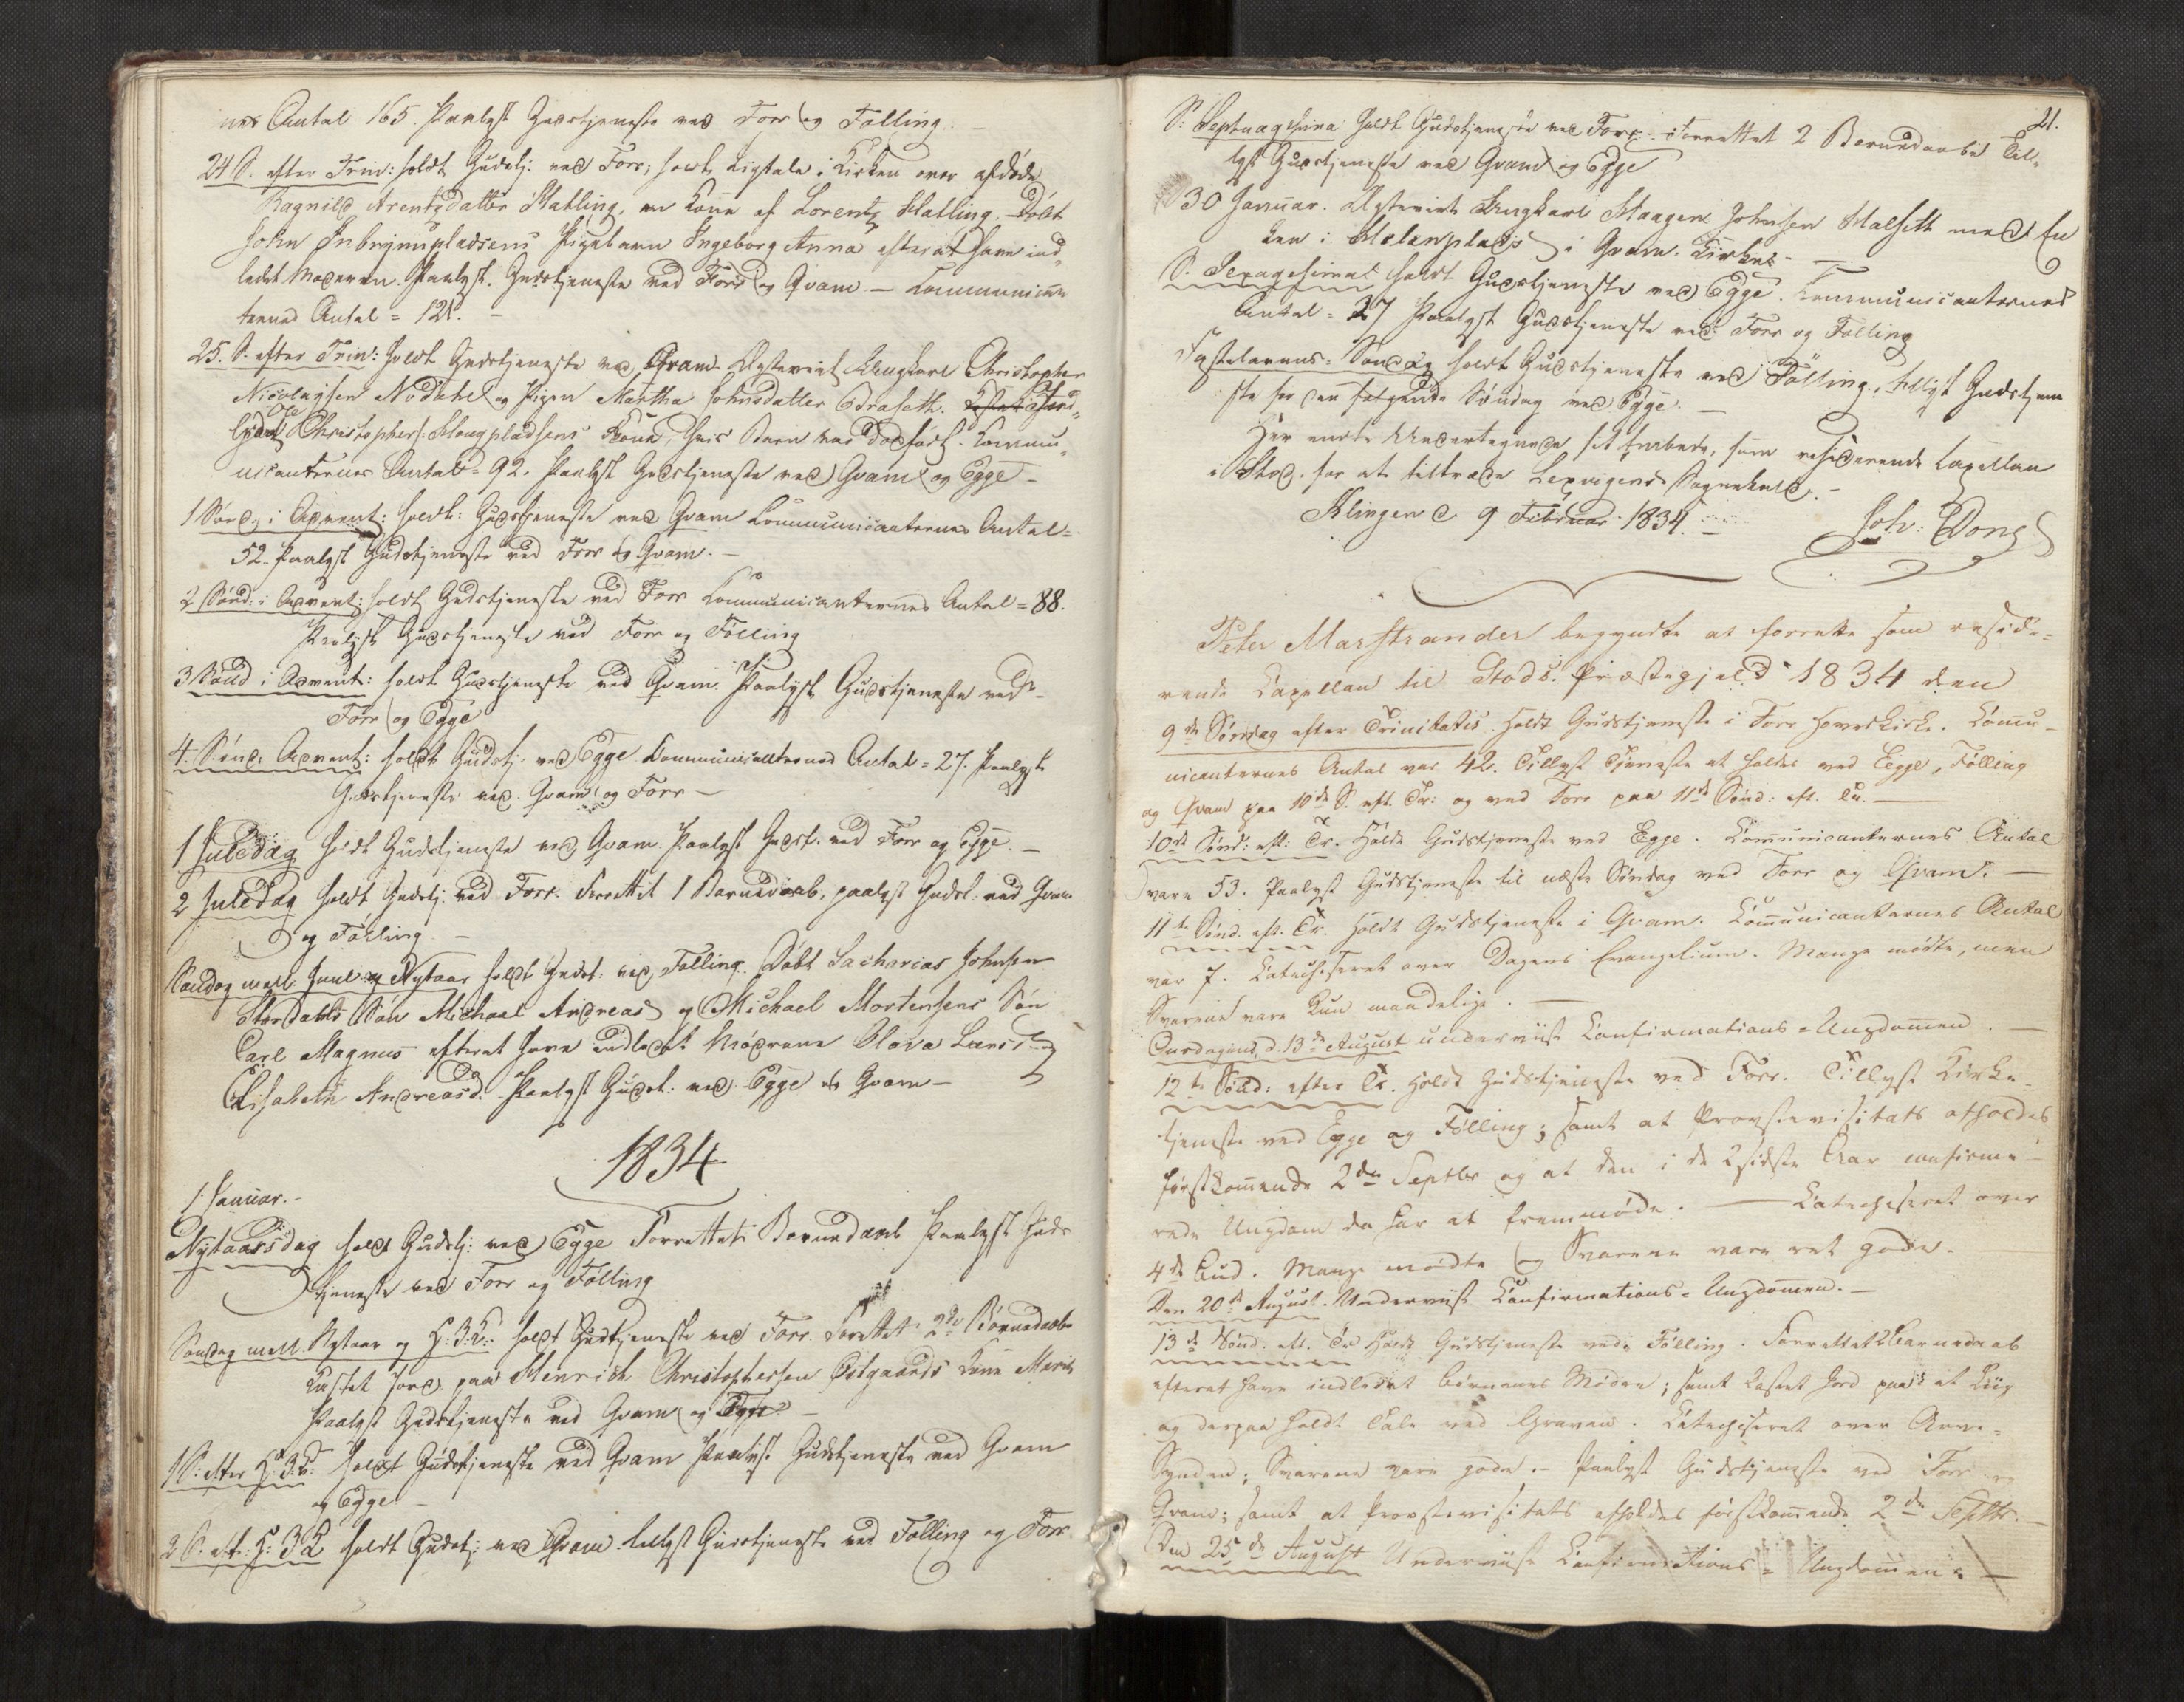 nes Antal 165. Paalyst Gudstjeneste ved Forr og Følling. –
24 S. efter Trin: holdt Gudstj: ved Forr, holdt Ligtale i Kirken over afdøde
Ragnild Arentzdatter Hatling, en Kone af Lorentz Hatling. Døbt
John pladsens Pigebarn Ingeborg Anna efterat have ind„
ledet Moderen. Paalyst Gudstjeneste ved Forr og Qvam – Communican
ternes Antal = 128. –
25. S. efter Trin: holdt Gudstjeneste ved Qvam. Ægteviet Ungkarl Christopher
Nicolaysen Nødahl og Pigen Martha Johnsdatter Braseth.
Ole Christophers: Mougpladsens Kone, hvis Barn var dødfødt. Commu„
nicanternes Antal = 92. Paalyst Gudstjeneste ved Qvam og Egge –
1 Sønd. i Advent: holdt Gudstjeneste ved Qvam Communicanternes Antal =
52. Paalyst Gudstjeneste ved Forr og Qvam. –
2 Sønd: i Advent: holdt Gudstjeneste ved Forr Communicanternes Antal = 88.
Paalyst Gudstjeneste ved Forr og Følling
3 Sønd i Advent: holdt Gudstjeneste ved Qvam. Paalyst Gudstjeneste ved
Forr og Egge
4. Sønd. Advent: holdt Gudstj. ved Egge Communicanternes Antal = 27. Paalyst
Gudstjeneste ved Qvam og Forr –
1 Juledag holdt Gudstjeneste ved Qvam. Paalyst Gudst. ved Forr og Egge. –
2 Juledag holdt Gudstj: ved Forr. Forrettet 1 Barnedaab, paalyst Gudst. ved Qvam
og Følling –
Søndag mell. Juul og Nytaar holdt Gudst: ved Følling. Døbt Zacharias Johnsen
Stordahls Søn Michael Andreas og Michael Mortensens Søn
Carl Magnus efterat have indledet Mødrene Olava Larsd. og
Elisabeth Andreasd. Paalyst Gudst. ved Egge og Qvam –
1834
1. Januar. –
Nytaarsdag holdt Gudstj: ved Egge Forrettet 1 Barnedaab Paalyst Guds
tjeneste ved Forr og Følling
Søndag mell. Nytaar og H: 3: K: holdt Gudstjeneste ved Forr. Forrettet 2de Barnedaabe
Kastet Jord paa Henrich Christophersen Østgaards Kone Marit
Paalyst Gudstjeneste ved Qvam og Egge –
1 S: efter H: 3: K: holdt Gudstjeneste ved Qvam Paalyst Gudstjeneste ved Qvam
og Egge –
2 S. eft: H: 3 K holdt Gudstj: ved Qvam. tillyst Gudstjeneste ved Følling og Forr
21.
S: Septuagesima holdt Gudstjeneste ved Forr. Forrettet 2 Barnedaabe Til„
lyst Gudstjeneste ved Qvam og Egge
30 Januar. Ægteviet Ungkarl Johnsen Halseth med En
ken i i Qvam Kirke –
S. Sexagesima holdt Gudstjeneste ved Egge. Communicanternes
Antal = 27 Paalyst Gudstjeneste ved Forr og Følling
Fastelavns-Søndag holdt Gudstjeneste ved Følling, tillyst Gudstjene
ste for den følgende Søndag ved Egge. –
Her endte Undertegnede sit Embede, som residerende Capellan
i Stod. for at tiltræde Lexvigens Sognekald. –
Klingen d 9 Februar 1834. –
Joh: Dons
Peter Marstrander begyndte at forrette som reside-
rende Capellan til Stods Præstegjeld 1834 den
9de Søndag efter Trinitatis. Holdt Gudstjeneste i Forr Hovedkirke. Commu-
nicanternes Antal var 42. Tillyst Tjeneste at holdes ved Egge, Følling
og Qvam paa 10de S. eft. Tr: og ved Forr paa 11te Sønd: eft. Tr. –
10de Sønd: eft: Tr. Holdt Gudstjeneste ved Egge. Communicanternes Antal
vare 53. Paalyst Gudstjeneste til næste Søndag ved Forr og Qvam. –
11te Sønd. eft. Tr. Holdt Gudstjeneste i Qvam. Communicanternes Antal
var 7. Catechiseret over Dagens Evangelium. Mange mødte, men
Svarene vare kun maadelige. –
Onsdagens d. 13de August underviist Confirmations-Ungdommen. –
12te Sønd: efter Tr. Holdt Gudstjeneste ved Forr. Tillyst Kirke-
tjeneste ved Egge og Følling; samt at Provstevisitats afholdes
førstkommende 2den Septbr og at den i de 2 sidste Aar confirme-
rede Ungdom da har at fremmøde. – Catechiseret over
4de Bud. Mange mødte og Svarene vare ret gode.
Den 20de August. Underviist Confirmations-Ungdommen. –
13de Sønd: eft. Tr Holdt Gudstjeneste ved Følling. Forrettet 2 Barnedaab
efterat have indledet Børnenes Mødre; samt kastet Jord paa et Liig
og derpaa holdt Tale ved Graven. Catechiseret over Arve-
Synden; Svarene vare gode. – Paalyst Gudstjeneste ved Forr og
Qvam; samt at Provstevisitats afholdes førstkommende 2den Septbr. –
Den 25de August Underviist Confirmations-Ungdommen. –